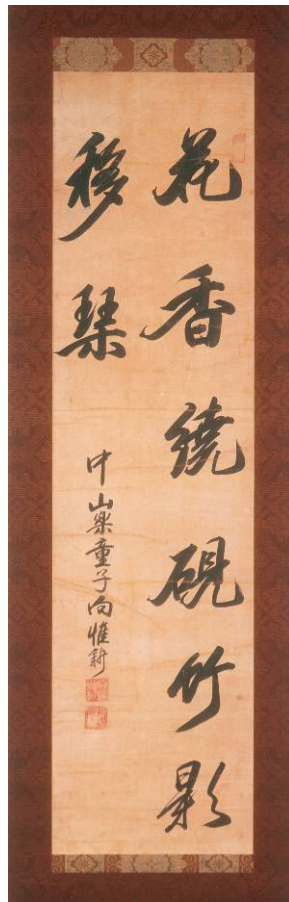 花香繞硯竹影
移琹
中山樂童子向惟新